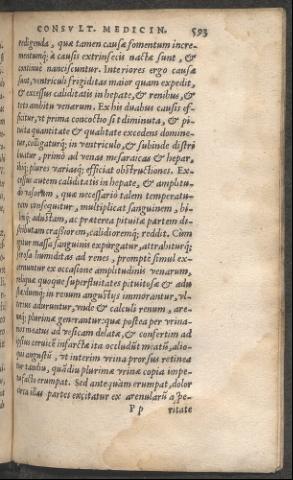 CONSVLT. MEDICIN. 593
redigenda, quæ tamen causæ fomentum incre-
mentumq́; à causis extrinsecis nactæ sunt, &
continuè nanciscuntur. Interiores ergo causæ
sunt, ventriculi frigiditas maior quam expedit,
& excessus caliditatis in hepate, & renibus, &
totis ambitu venarum. Ex his duabus causis ef-
ficitur, vt prima concoctio sit diminuta, & pi-
tuita quantitate & qualitate excedens domine-
tur, colligaturq́; in ventriculo, & subinde distri
buatur, primò ad venas mesaraicas & hepar,
ibiq́; plures variasq́; efficiat obstructiones. Ex-
cessus autem caliditatis in hepate, & amplitu-
do vasorum, quæ necessariò talem temperatu-
ram consequitur, multiplicat sanguinem, bi-
lemq́; adustam, ac præterea pituitæ partem de-
stributam crassiorem, calidioremq́; reddit. Cùm
igitur massa sanguinis expurgatur, attrabiturq́;
serosa humiditas ad renes, promptè simul ex-
cernuntur ex occasione amplitudinis venarum,
reliquæ quoque superfluitates pituitosæ & adu
stæ dumq́; in renum angustijs immorantur, vl-
terius aduruntur, vnde & calculi renum, are-
næq́; plurimæ generantur: quæ postea per vrina-
rios meatus ad vesicam delatæ, & confertim ad
ipsius ceruicē infarctæ ita occludūt meatū, alio-
qui angustū, vt interim vrina prorsus retinea
tur tandiu, quādiu plurimæ vrinæ copia impe-
tu facto erumpat. Sed antequàm erumpat, dolor
circa illas partes excitatur ex arenularū aspe-
P p ritate